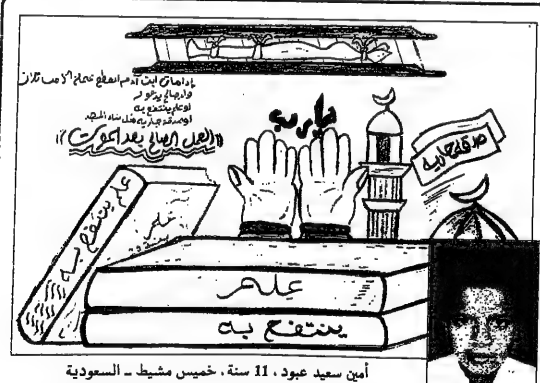 إذا مات ابن آدم انقطع عمله إلا من ثلاث
ولد صالح يدعو له
أو علم ينتفع به
أو صدقة جارية مثل بناء المسجد
«العمل الصالح بعد الموت»
يارب
صدقة جارية
علم ينتفع به
علم
علم
ينتفع به
أمين سعيد عبود، 11 سنة، خميس مشيط ـ السعودية